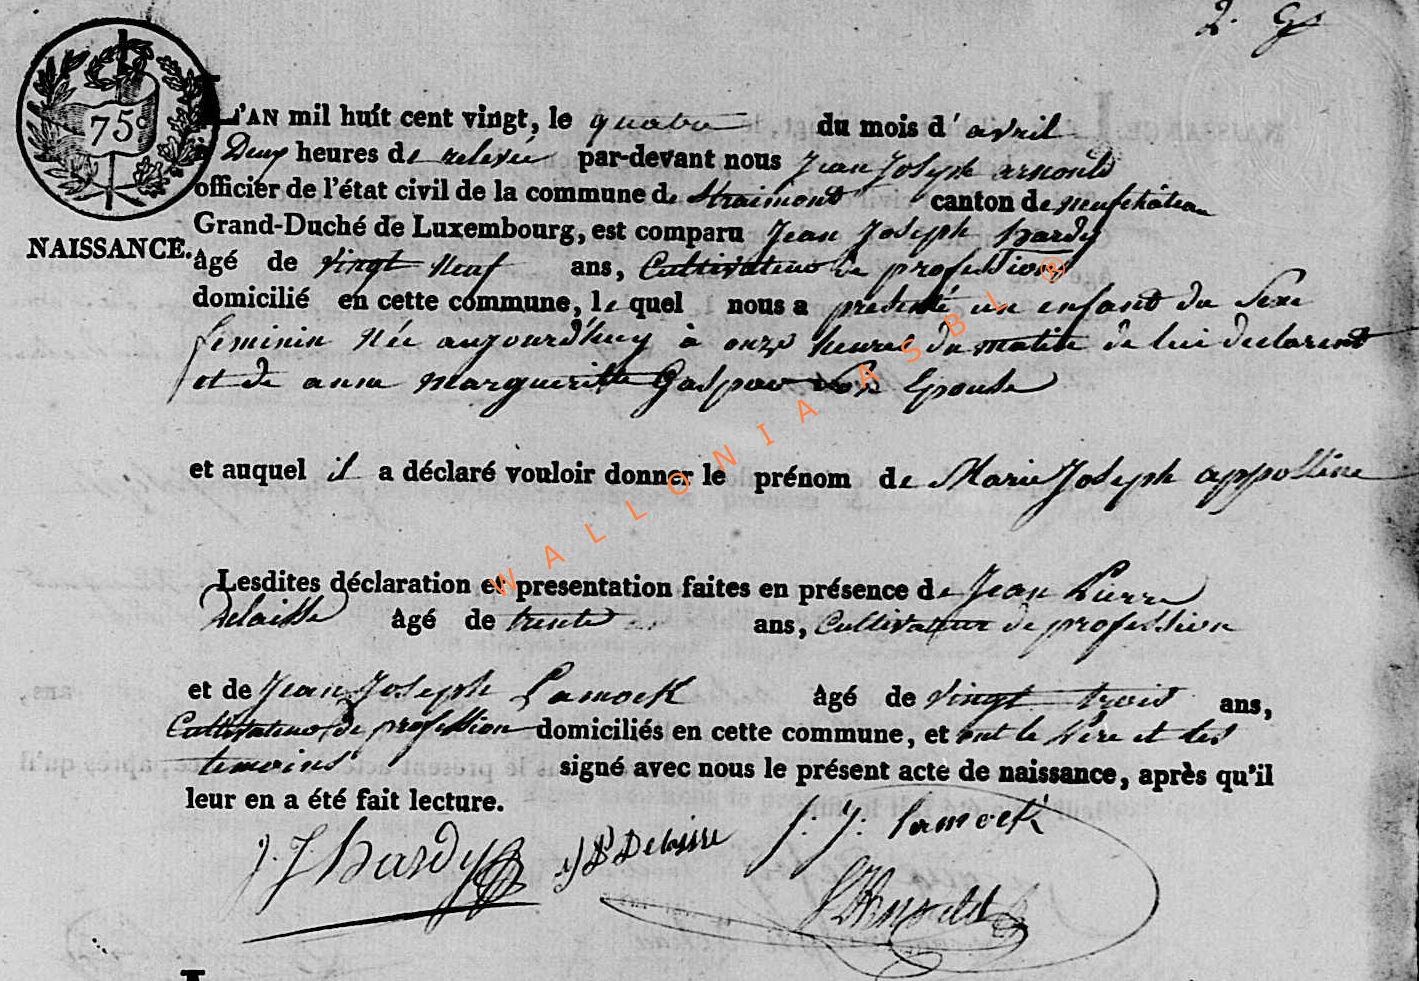 2.
75c
L'AN mil huit cent vingt, le quatre du mois d'avril
à Deux heures de relevée par-devant nous Jean Joseph arnould
officier de l'état civil de la commune de Straimont canton de neufchâteau
Grand-Duché de Luxembourg, est comparu Jean Joseph hardy
NAISSANCE.
âgé de vingt neuf ans, Cultivateur de profession
domicilié en cette commune, le quel nous a présenté un enfant du Sexe
feminin Née aujourd'huy à onze heures du matin de lui declarent
et de anne margueritte Gaspar son Epouse
et auquel il a déclaré vouloir donner le prénom de Marie Joseph appolline
Lesdites déclaration et presentation faites en présence de Jean Pierre
Delaisse âgé de trente ans, Cultivateur de profession
et de Jean Joseph Lamock âgé de vingt trois ans,
Cultivateur de profession domiciliés en cette commune, et ont le Père et les
temoins signé avec nous le présent acte de naissance, après qu'il
leur en a été fait lecture.
J. J. hardy J P Delaisse J: J: Lamock
WALLONIA ASBL ®